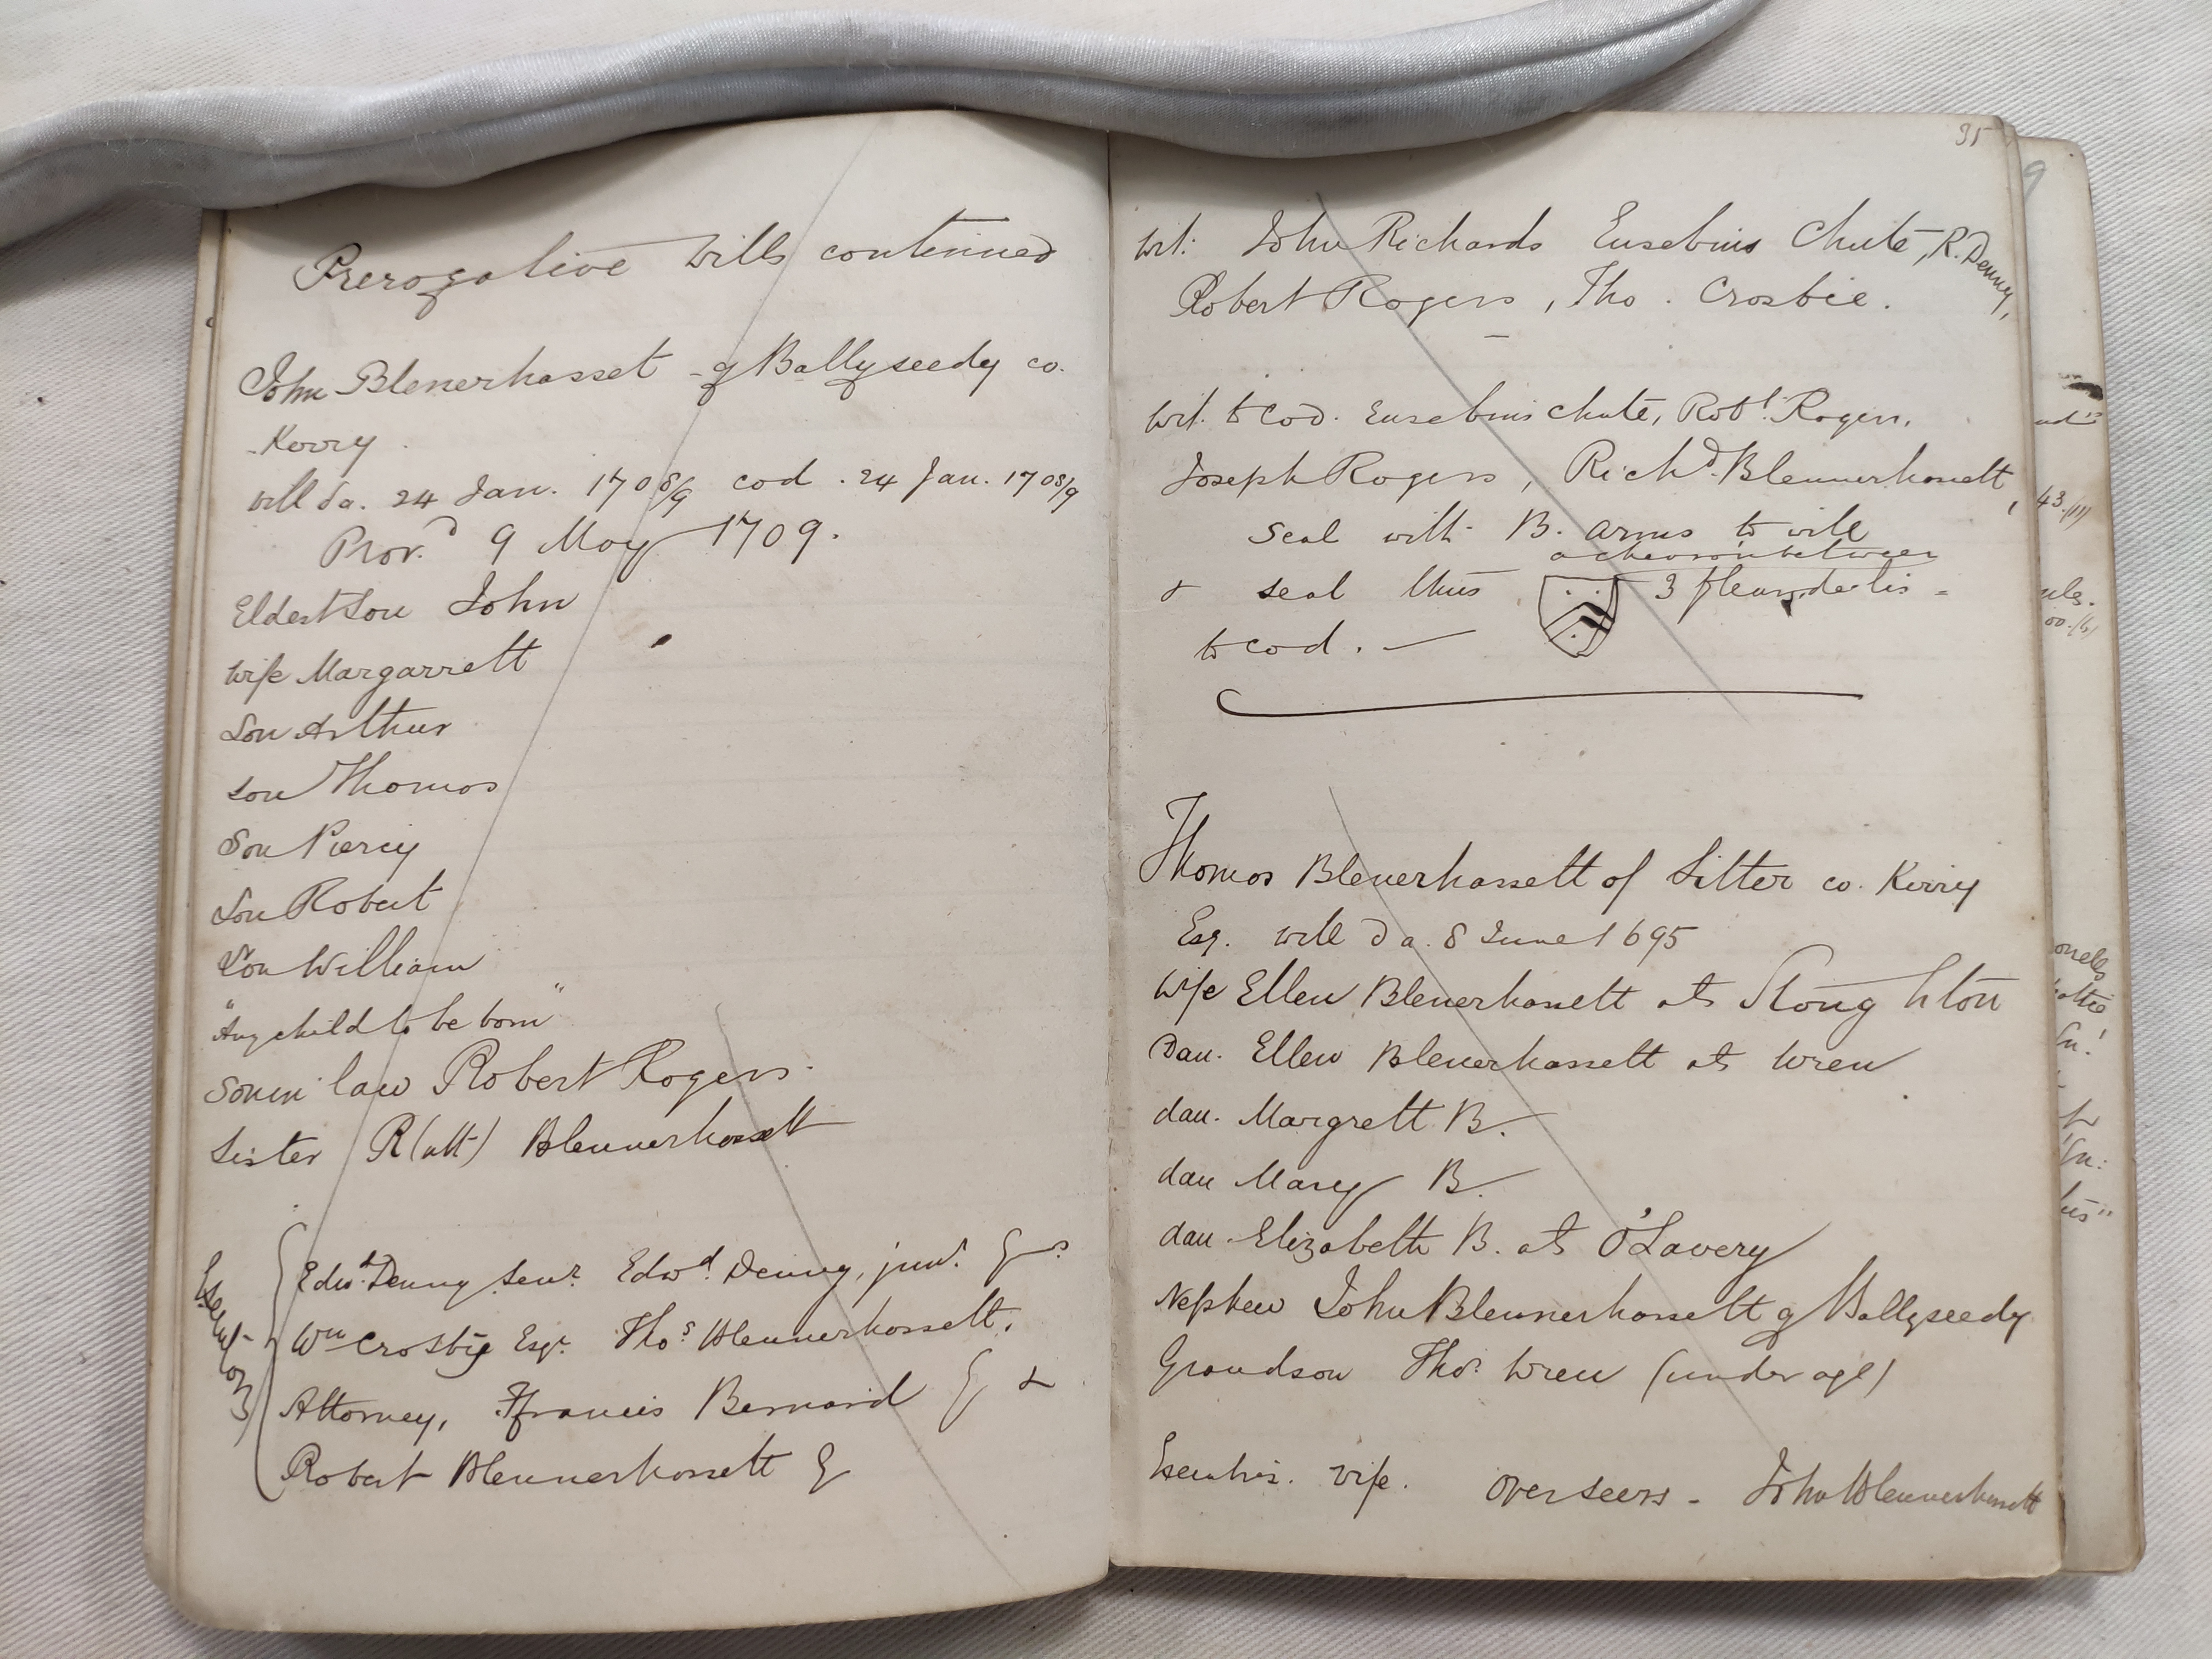 Prerogative Wills continued
John Blenerhasset of Ballyseedy co.
Kerry.
Will da. 24 Jan. 1708/9 cod. 24 Jan. 1708/9
Prov.d 9 May 1709.
Eldest Son John
Wife Margarrett
Son Arthur
Son Thomas
Son Piercy
Son Robert
Son William
"Any child to be born"
Son in law Robert Rogers.
Sister R(utt) Blennerhassett
Executors
Edwd. Denny Senr. Edwd. Denny, junr. Esqrs
Wm Crosbie Esqr. Thos Blennerhassett,
Attorney, Ffrancis Bernard Esq &
Robert Blennerhassett Esq
35
Wit: John Richards Eusebius Chute, R. Denny,
Robert Rogers, Tho. Crosbie.
Wit. to Cod. Eusebius Chute, Robt. Rogers,
Joseph Rogers, Richd. Blennerhassett,
Seal with B. arms to will
a chevron between
& seal thus 3 fleur de lis
to cod.
Thomas Blenerhassett of Litter co. Kerry
Esq. will da. 8 June 1695
Wife Ellen Blenerhassett als Stoughton
Dau. Ellen Blenerhassett als Wren
dau. Margrett B.
dau Mary B.
dau. Elizabeth B. als O'Lavery
Nephew John Blennerhassett of Ballyseedy
Grandson Thos. Wren (under age)
Executrix. Wife. Overseers - John Blennerhassett